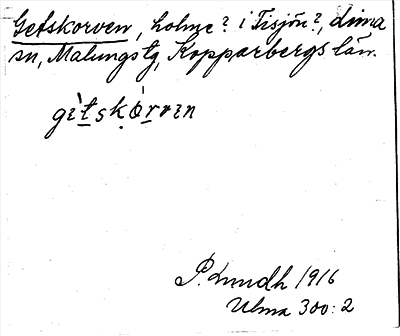 Getskorven, holme? i Tisjön?, Lima
sn, Malungs tg, Kopparbergs län.
gìtskórvin
P. Lundh 1916
Ulma 300:2